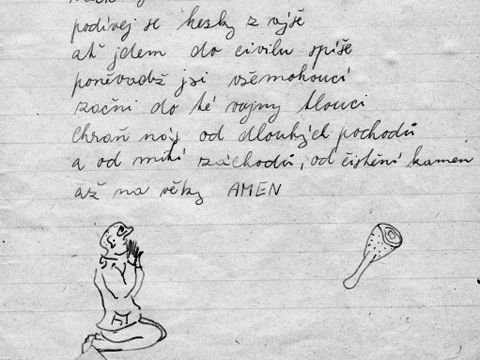 podívej se hesky z výše
ať jdem do civilu spíše
poněvadž jsi všemohoucí
začni do té vojny tlouci
chraň nás od dlouhých pochodů
a od mití záchodů, od čistění kamen
až na věky AMEN